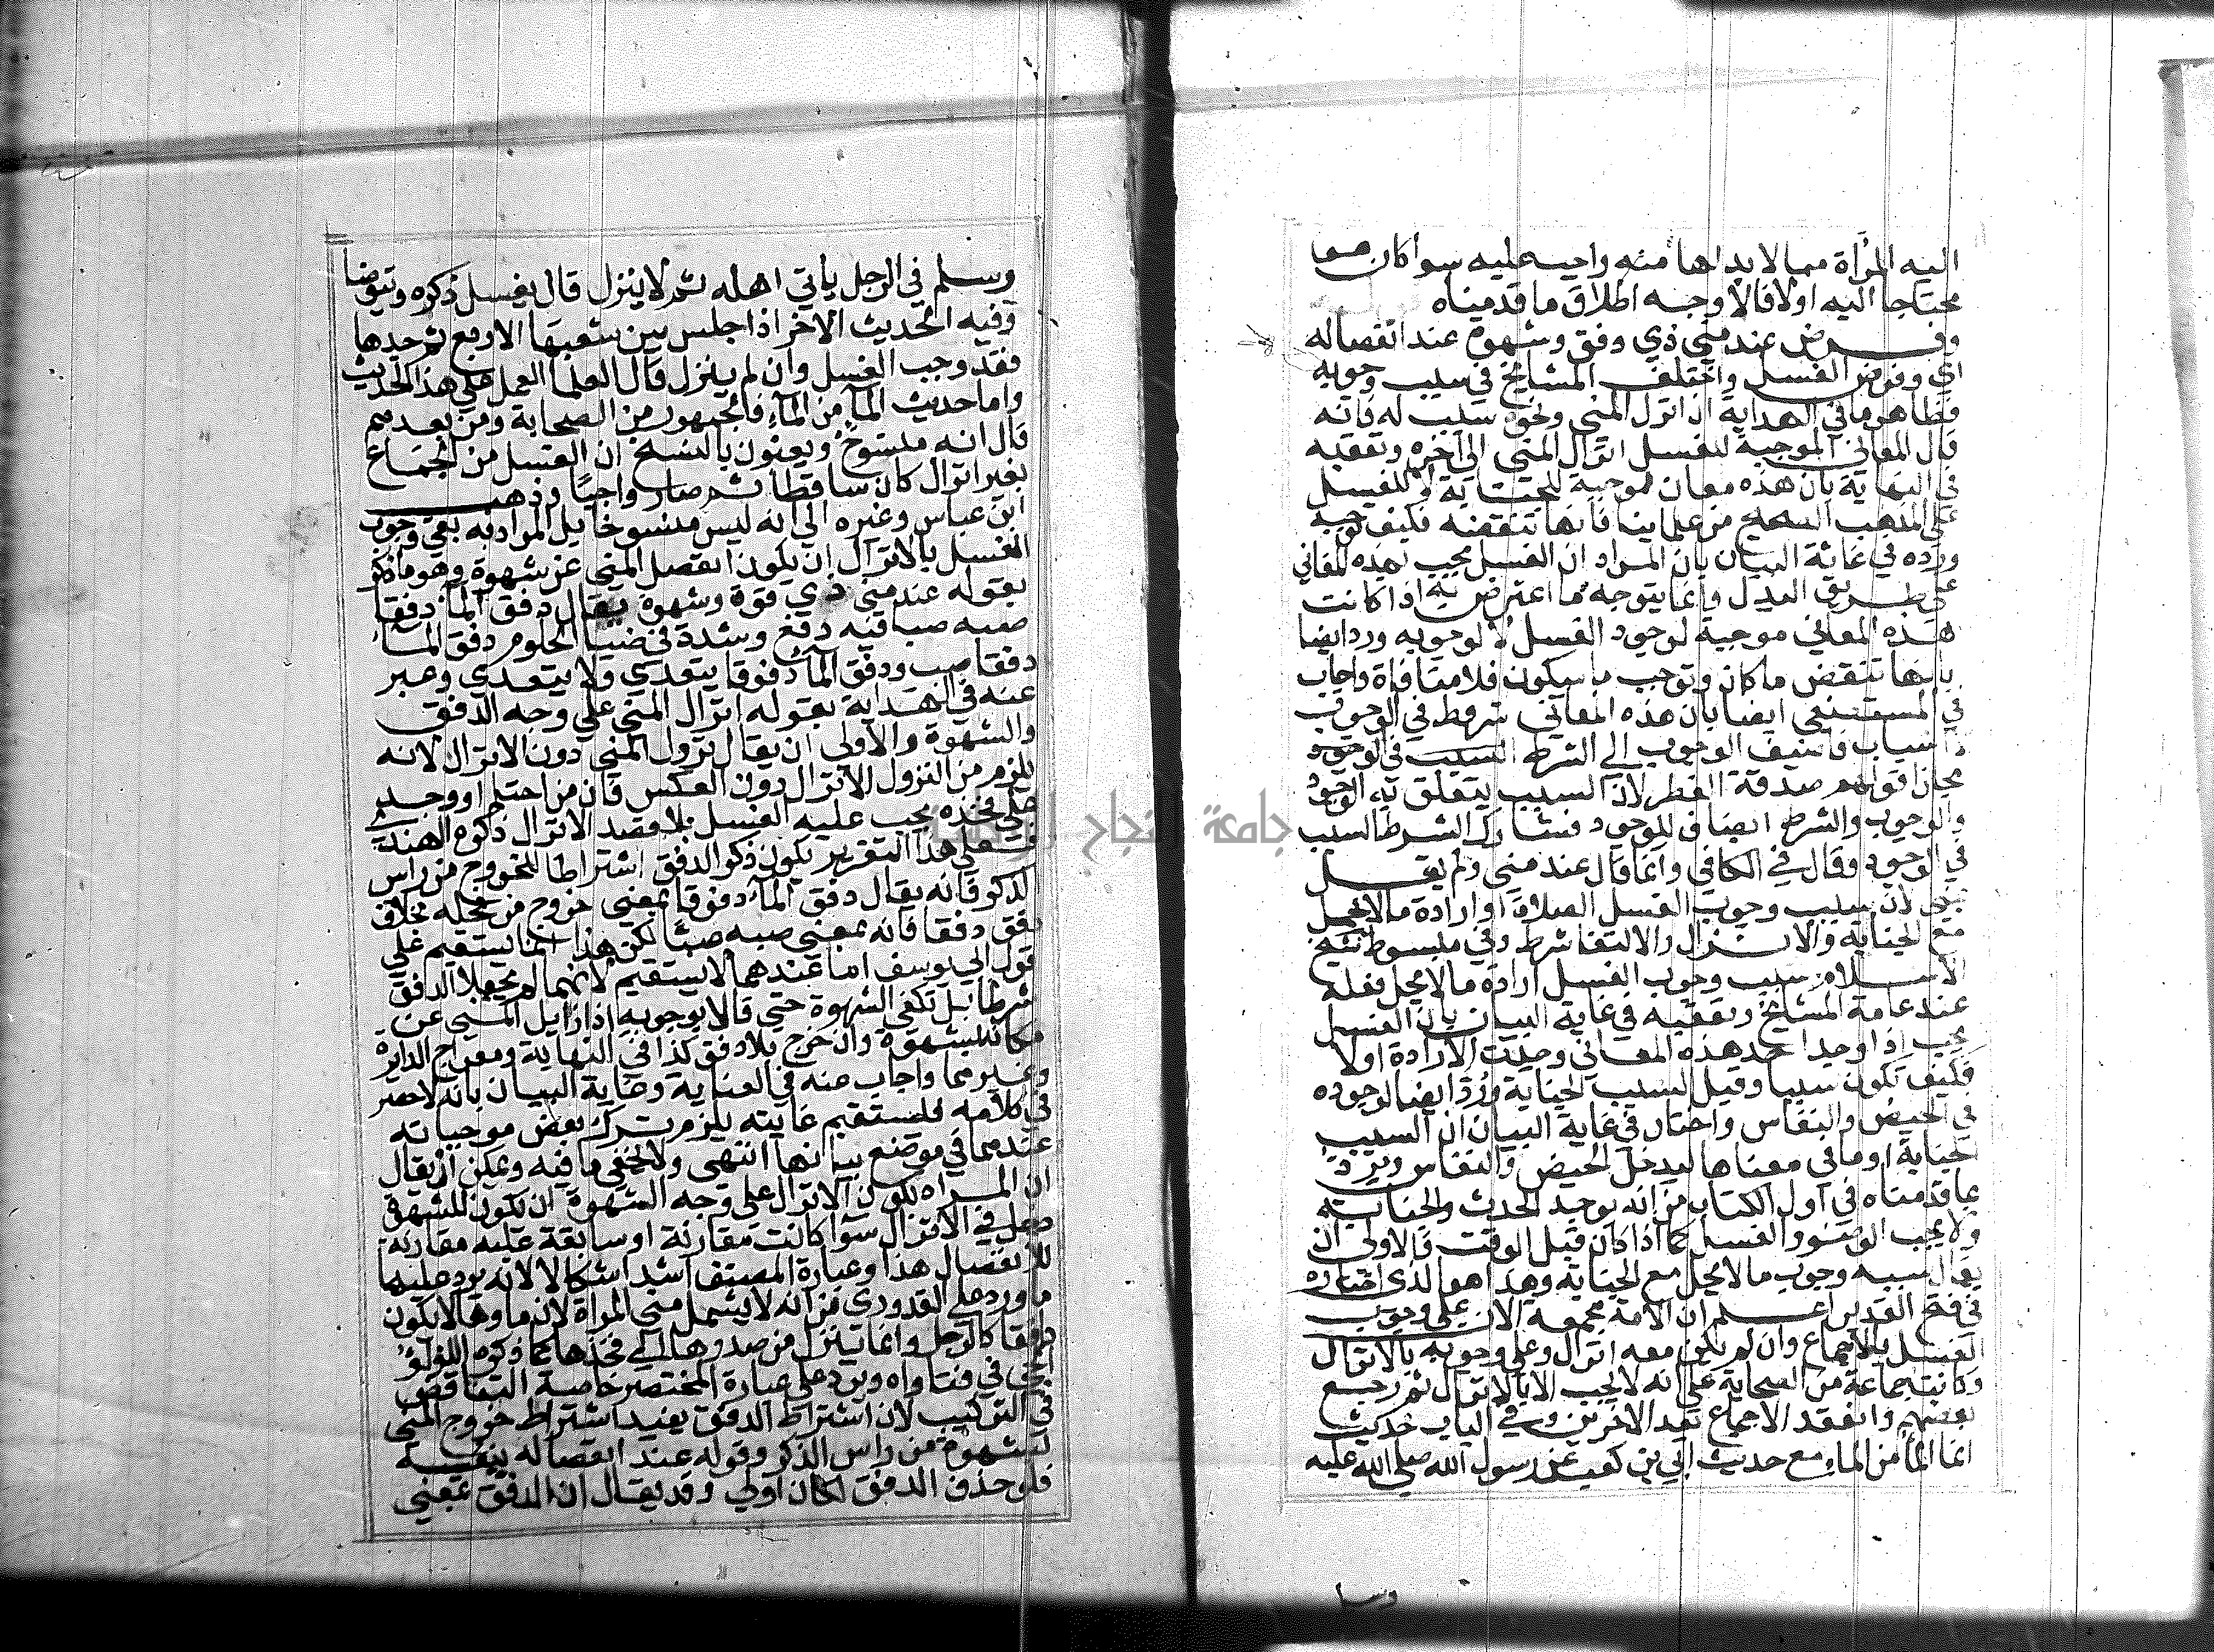 اليه المرأة مما لا بد لها منه واجب عليه سوا كان هو
محتاجا اليه اولا فالاوجه اطلاق ما قدمناه
وفرض عند مني ذي دفق وشهوة عند انفصاله
اي وفرض الغسل واختلف المشايخ في سبب وجوبه
فظاهر ما في الهداية ان انزال المني ونحوه سبب له فانه
قال المعاني الموجبة للغسل انزال المني الى اخره وتعقبه
في النهاية بان هذه معان موجبة للجنابة لا للغسل
على المذهب الصحيح من علماينا فانها تنقضه فكيف توجبه
ورده في غاية البيان بان المراد ان الغسل يجب بهذه المعاني
على طريق البدل وانما يتوجه ما اعترض به اذا كانت
هذه المعاني موجبة لوجود الغسل لا لوجوبه ورد ايضا
بانها تنقض ما كان وتوجب ما سيكون فلا منافاة واجاب
في المستصفى ايضا بان هذه المعاني شروط في الوجوب
لا اسباب فاضيف الوجوب الى الشرط السبب في الوجود
مجازا قولهم صدقة الفطر لان السبب يتعلق به الوجود
والوجوب والشرط ايضاف للوجود فشارك الشرط السبب
في الوجود وقال في الكافي وانما قال عند مني ولم يقل
بمني لان سبب وجوب الغسل الصلاة او ارادة ما لا يحل
مع الجنابة والانزال والالتقا شرط وفي مبسوط شيخ
الاسلام سبب وجوب الغسل ارادة ما لا يحل فعله
عند عامة المشايخ وتعقبه في غاية البيان بان الغسل
يجب اذا وجد احد هذه المعاني وجدت الارادة اولا
فكيف تكون سببا وقيل السبب الجنابة ورد ايضا لوجوده
في الحيض والنفاس واختار في غاية البيان ان السبب
الجنابة او ما في معناها ليدخل الحيض والنفاس ويرد
بما قدمناه في اول الكتاب من انه يوجد الحدث والجنابة
ولا يجب الوضو والغسل كما اذا كان قبل الوقت فالاولى ان
يقال سببه وجوب ما لا يحل مع الجنابة وهذا هو الذي اختاره
في فتح القدير اعلم ان الامة مجمعة الان على وجوب
الغسل بالجماع وان لم يكن معه انزال وعلى وجوبه بالانزال
وكانت جماعة من الصحابة على انه لا يجب الا بالانزال ثم رجع
بعضهم وانعقد الاجماع بعد الاخرين وفي الباب حديث
انما الماء من الماء مع حديث ابي بن كعب عن رسول الله صلى الله عليه
وسلم
وسلم في الرجل ياتي اهله ثم لا ينزل قال يغسل ذكره ويتوضا
وفيه الحديث الاخر اذا جلس بين شعبها الاربع ثم جهدها
فقد وجب الغسل وان لم ينزل قال العلما العمل على هذا الحديث
واما حديث الماء من الماء فالجمهور من الصحابة ومن بعدهم
قال انه منسوخ ويعنون بالنسخ ان الغسل من الجماع
بغير انزال كان ساقطا ثم صار واجبا وذهب
ابن عباس وغيره الى انه ليس منسوخا بل المراد به بقي وجوب
الغسل بالانزال ان يكون انفصل المني عن شهوة وهو ما ذكر
بقوله عند مني ذي قوة وشهوة يقال دفق الماء دفقا
صبه صبا فيه دفع وشدة فى ضيا الحلوم دفق الماء
دفقا صب ودفق الماء دفوقا يتعدي ولا يتعدي وعبر
عنه في الهداية بقوله انزال المني على وجه الدفق
والشهوة والاولى ان يقال نزول المني دون الانزال لانه
يلزم من النزول الانزال دون العكس فان من احتلم او وجد
على فخذه يجب عليه الغسل بلا قصد الانزال ذكره الهندي
فعلى هذا التقرير يكون ذكر الدفق اشتراطا للخروج من راس
الذكر فانه يقال دفق الماء دفوقا بمعنى خروج من محله بخلاف
دفق دفقا فانه بمعنى صبه صبا لكن هذا انما يستقيم على
قول ابي يوسف اما عندهما لا يستقيم لانهما لم يجعلا الدفق
شرطا بل تكفي الشهوة حتى قالا بوجوبه اذا زايل المني عن
مكانه بشهوة وان خرج بلا دفق كذا في النهاية ومعراج الدراية
وغيرهما واجاب عنه في العناية وغاية البيان بانه لا حصر
في كلامه فلستقيم غايته يلزم ترك بعض موجباته
عندهما في موضع بيانها انتهى ولا يخفى ما فيه ويمكن ان يقال
ان المراد بكون الانزال على وجه الشهوة ان تكون للشهوة
دخل في الانزال سوا كانت مقارنة او سابقة عليه مقارنة
للانفصال هذا وعبارة المصنف اشد اشكالا لانه يرد عليها
ما ورد على القدوري من انه لا يشمل مني المراة لان ماوها لا يكون
دافقا كالرجل وانما ينزل من صدرها الى فخذها كما ذكره اللؤلؤ
الجي في فتاواه ويرد على عبارة المختصر خاصة التناقض
في التركيب لان اشتراط الدفق يفيد اشتراط خروج المني
بشهوة من راس الذكر وقوله عند انفصاله ينفيه
فلو حذف الدفق لكان اولى وقد يقال ان الدفق بمعنى